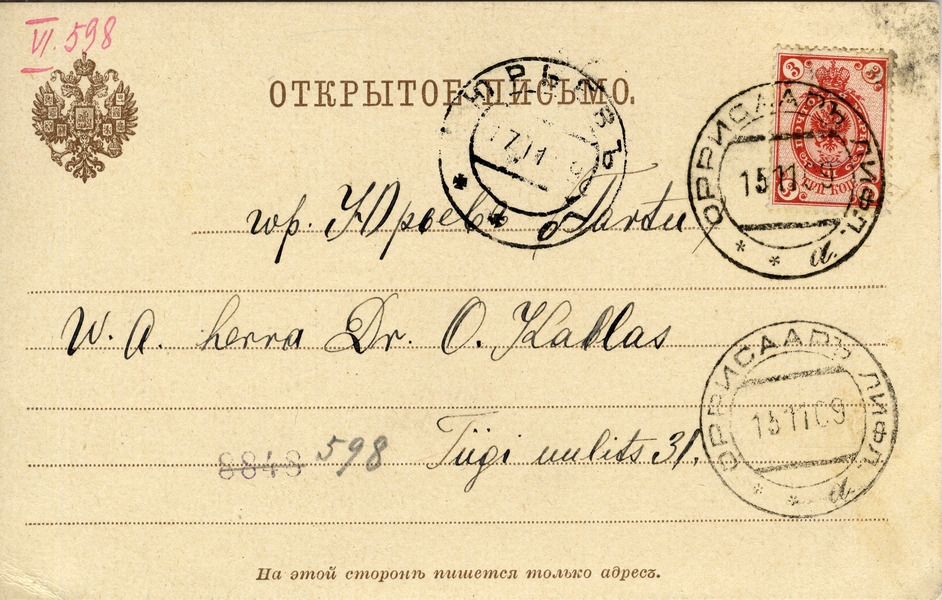 VI. 598
ОТКРЫТОЕ ПИСЬМО.
ЮРЬЕВЪ
3 3
ОРРИСААРЪ ЛИФЛ.
15 11 09
a.
гр. Юрьевъ Tartu
W. A. herra Dr. O. Kallas
ОРРИСААРЪ ЛИФЛ.
15 11 09
a.
Tiigi uulits 31.
8848 598
На этой сторонѣ пишется только адресъ.